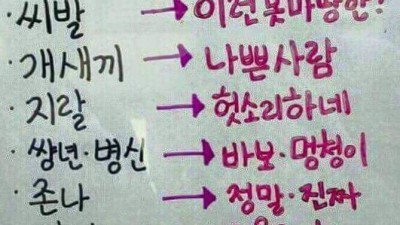 · 씨발 → 이런 못마땅한!
· 개새끼 → 나쁜사람
· 지랄 → 헛소리하네
· 쌍년·병신 → 바보·멍청이
· 존나 → 정말·진짜